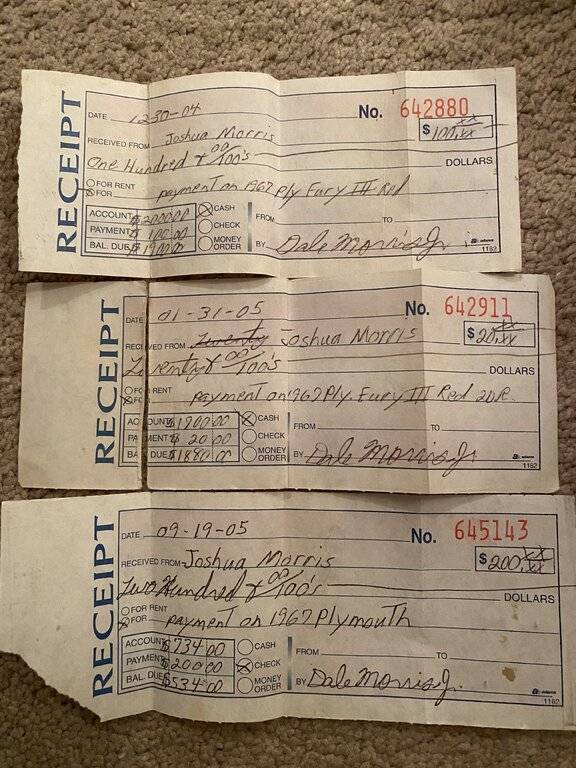 RECEIPT
DATE 12-30-04 No. 642880
RECEIVED FROM Joshua Morris $100.xx
One Hundred & 00/100's DOLLARS
FOR RENT
FOR payment on 1967 Ply Fury III Red
ACCOUNT $2000.00 CASH FROM TO
PAYMENT $100.00 CHECK
BAL. DUE $1900.00 MONEY ORDER BY Dale Morris Jr.
adams
1182
RECEIPT
DATE 01-31-05 No. 642911
RECEIVED FROM Twenty Joshua Morris $20.xx
Twenty & 00/100's DOLLARS
FOR RENT
FOR payment on 1967 Ply. Fury III Red 2DR.
ACCOUNT $1900.00 CASH FROM TO
PAYMENT $20.00 CHECK
BAL. DUE $1880.00 MONEY ORDER BY Dale Morris Jr
adams
1182
RECEIPT
DATE 09-19-05 No. 645143
RECEIVED FROM Joshua Morris $200.xx
Two Hundred & 00/100's DOLLARS
FOR RENT
FOR payment on 1967 Plymouth
ACCOUNT $734.00 CASH FROM TO
PAYMENT $200.00 CHECK
BAL. DUE $534.00 MONEY ORDER BY Dale Morris Jr.
adams
1182